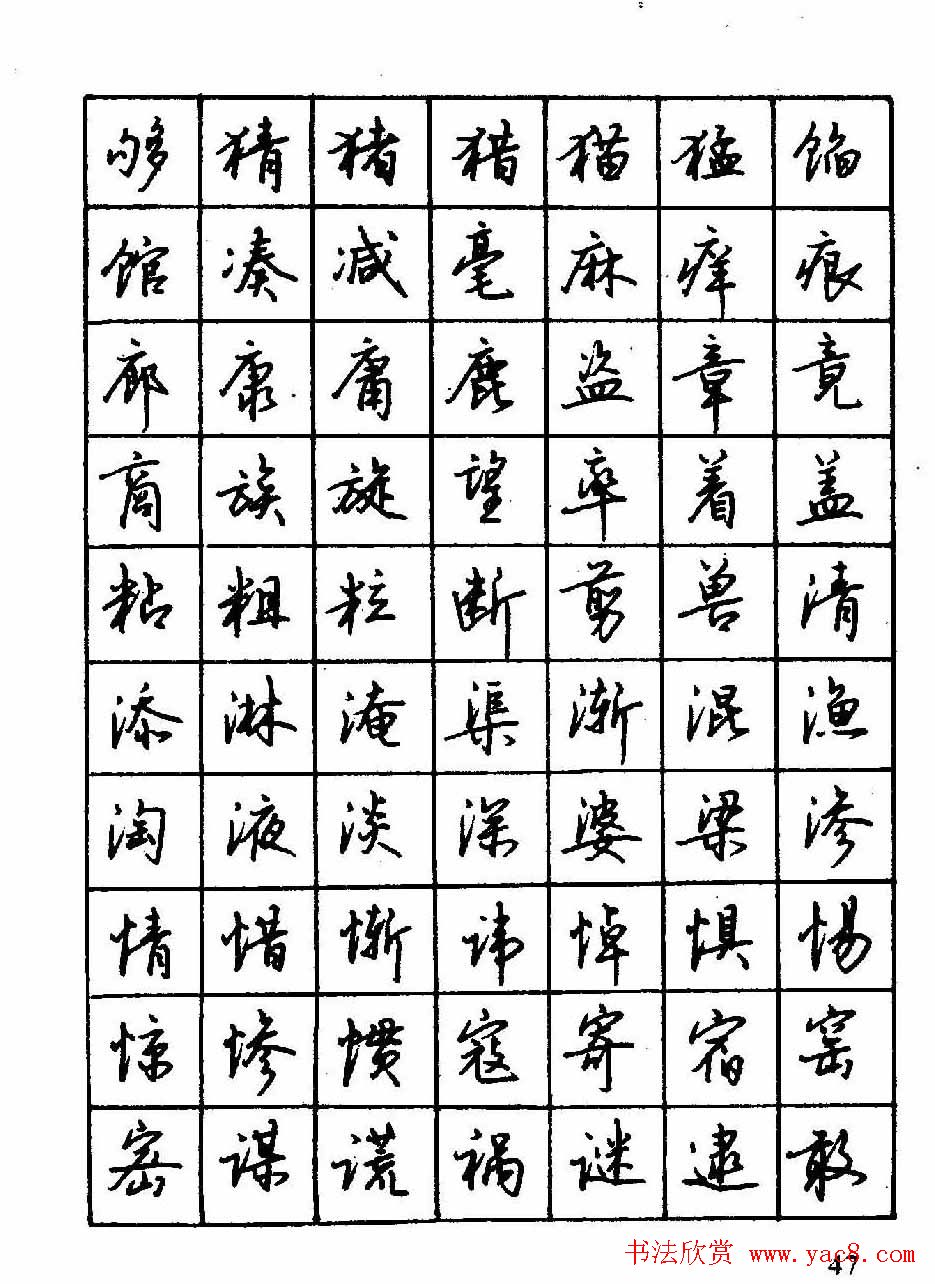 够猜猪猎猫猛馅
馆凑减毫麻痒痕
廊康庸鹿盗章竟
商族旋望率着盖
粘粗粒断剪兽清
添淋淹渠渐混渔
淘液淡深婆梁渗
情惜惭悼惧惕
惊惨惯寇寄宿窑
密谋谎祸谜逮敢
书法欣赏 www.yac8.com
47